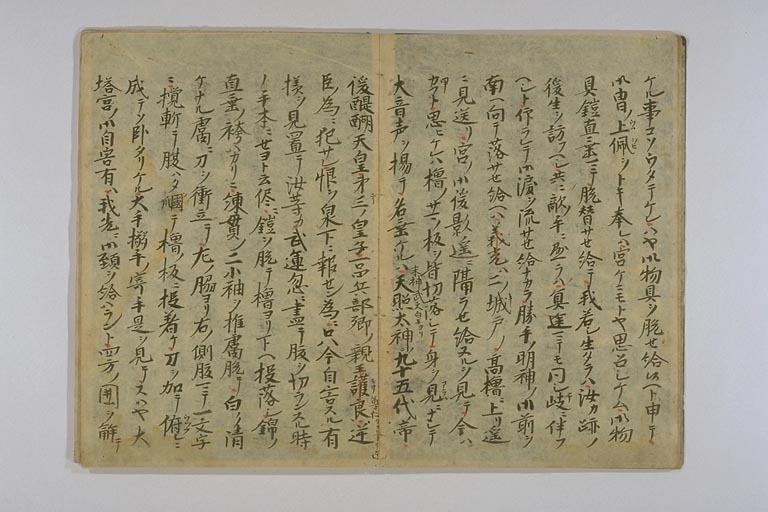 ケル事コソウタテケレハヤ御物具ヲ脱セ給ヘト申テ
御冑ノ上帯ヲトキ奉レハ宮ケニモトヤ思召レケム御物
具鎧直垂ニテ脱替サセ給テ我若生タラハ汝カ跡ノ
後生ヲ訪フヘシ共ニ敵ノ手ニ死ラハ冥途ニテモ同ク岐ニ伴フ
ヘシト仰ラレテ御涙ヲ流サセ給ナカラ勝手ノ明神ノ御前ヲ
南ヘ向テ落サセ給ヘハ義光ハ二ノ城戸ノ高櫓ニ上リ遥
ニ見送リ宮ノ御後影遥ニ隔ラセ給ヌルヲ見テ今ハ
カウト思ヒケレハ櫓ノサマノ板ヲ切落シテ身ヲ見ハシテ
大音声ヲ揚テ名乗ケルハ天照太神九十五代帝
後醍醐天皇第三ノ皇子一品兵部卿ノ親王護良逆
臣為ニ犯サレ恨ヲ泉下ニ報セン為ニ只今自害スル有
様ヲ見置テ汝等カ武運忽ニ盡テ腹ヲ切ランスル時
ノ手本ニセヨト云侭ニ鎧ヲ脱テ櫓ヨリ下ヘ投落シ錦ノ
直垂ノ袴ハカリニ練貫ノ二小袖ヲ推膚脱テ白ク清
ケナル膚ニ刀ヲ衝立テ左ノ脇ヨリ右ノ側腹ニテ一文字
ニ掻斬テ腹ハタ櫓ノ板ニ投著ケ刀ヲ加テ俯シニ
成テソ卧タリケル大手搦手ノ寄手是ヲ見テスハヤ大
塔宮ノ御自害有ハ我先ニ御頸ヲ給ハラント四方ノ囲ヲ解テ